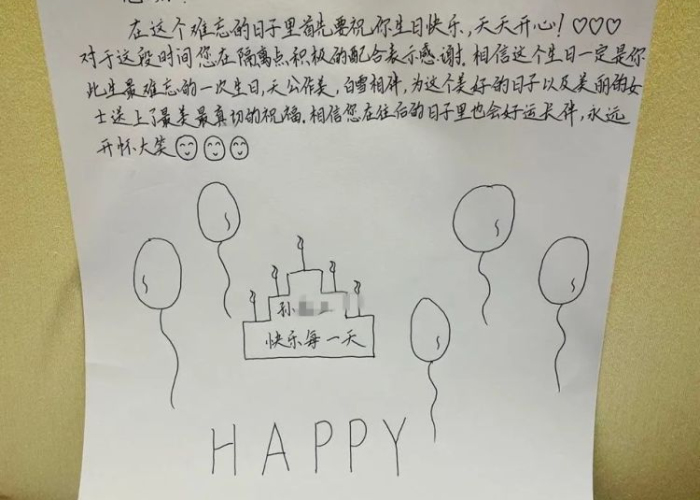 在这个难忘的日子里首先要祝你生日快乐，天天开心！♡♡♡
对于这段时间您在隔离点积极的配合表示感谢，相信这个生日一定是你
此生最难忘的一次生日，天公作美，白雪相伴，为这个美好的日子以及美丽的女
士送上了最美最真切的祝福。相信您在往后的日子里也会好运长伴，永远
开怀大笑
孙
快乐每一天
HAPPY